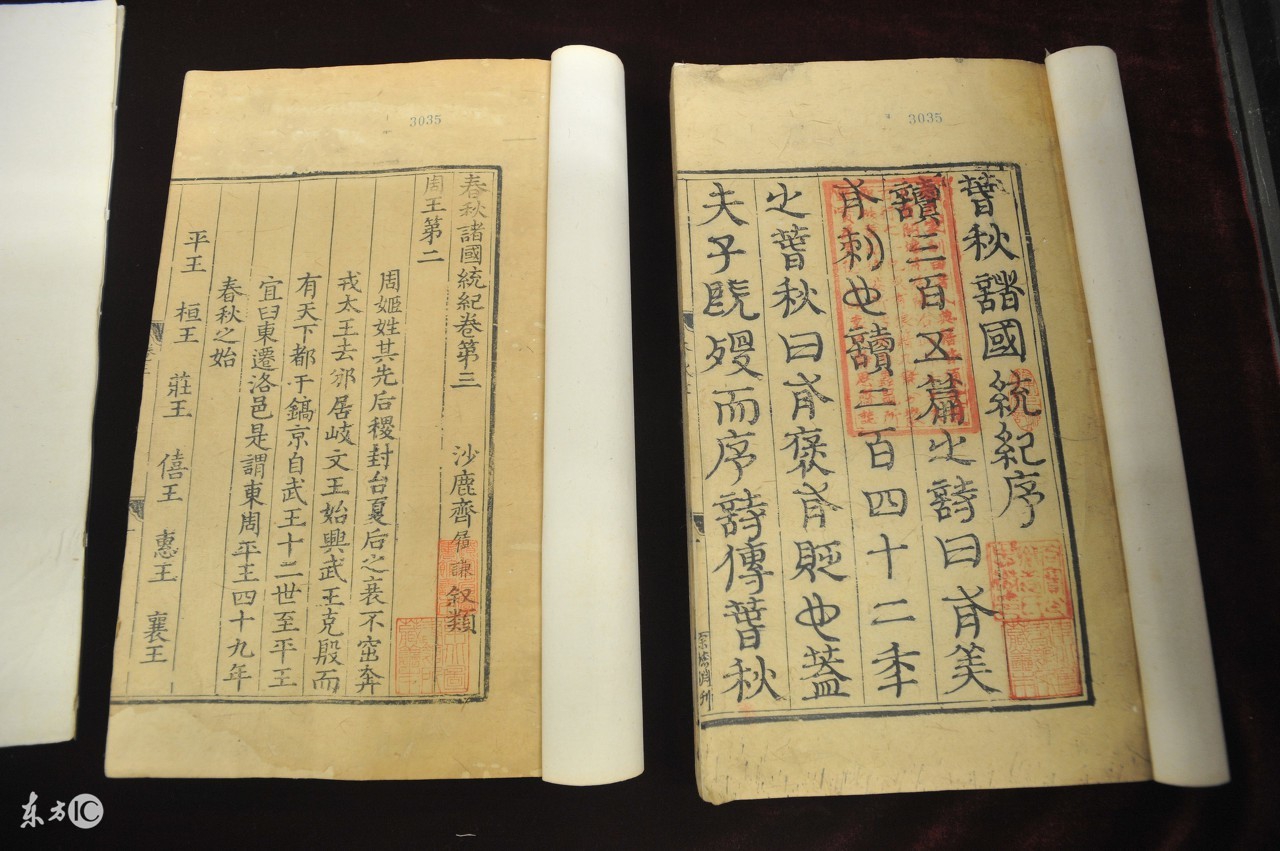 3035
萅秋諸國統紀序
讀三百五篇之詩曰有美
有刺也讀二百四十二年
之萅秋曰有褒有貶也蓋
夫子旣歿而序詩傳萅秋
3035
春秋諸國統紀卷第三 沙鹿齊履謙叙類
周王第二
周姬姓其先后稷封台夏后之衰不窋奔
戎太王去邠居岐文王始興武王克殷而
有天下都于鎬京自武王十二世至平王
宜臼東遷洛邑是謂東周平王四十九年
春秋之始
平王 桓王 莊王 僖王 惠王 襄王
东方IC